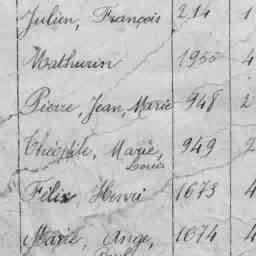 Julien, François 214 1
Mathurin 1950 4
Pierre, Jean, Marie 948 2
Théophile, Marie, 949 2
Louis
Félix Henri 1673 4
Marie, Ange, 1074 4